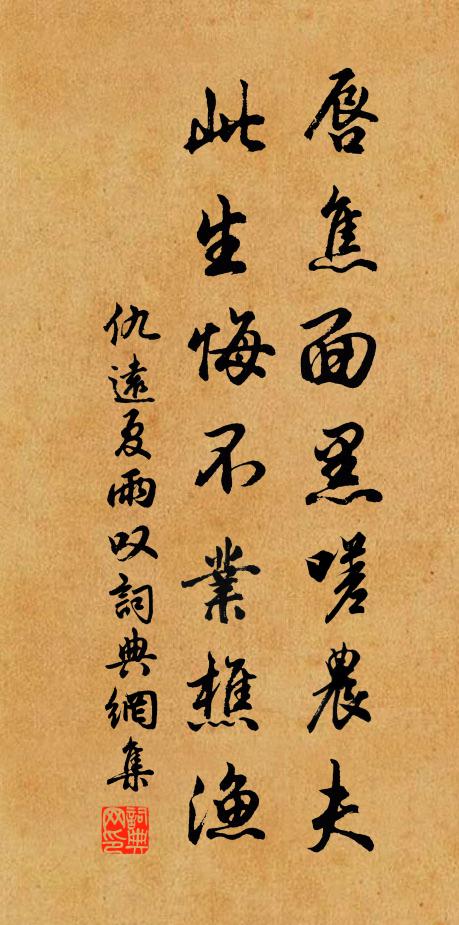 唇焦面黑嗟農夫
此生悔不業樵漁
仇遠夏雨叹詞典網集
詞典网印